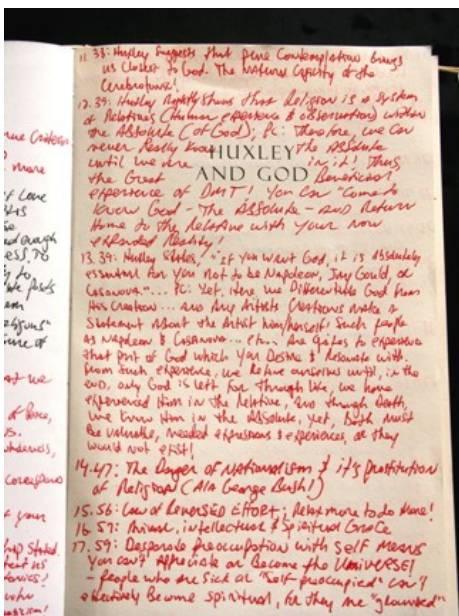 11.38: Huxley Suggests that pure Contemplation brings
us Closest to God. The Natural Capacity of the
12.39: Huxley Rightly shows that Religion is a system
of Relatives (Human experience & observation) within
the Absolute (of God); PC: Therefore, we can
never Really Know the Absolute
HUXLEY
until we are in it! Thus,
AND GOD
the Great Beneficial
experience of DMT! You can "Come to
Know God - The Absolute - and Return
Home to the Relative with your now
expanded Reality!
13.39: Huxley States, "If you want God, it is Absolutely
essential for you not to be Napoleon, Jay Gould, or
Casanova"... PC: Yet, Here we Differentiate God from
His Creation... and Any Artists Creations make a
Statement About the Artist him/herself! Such people
as Napoleon & Casanova... etc... Are gifts to experience
that part of God which you Desire & Resonate with.
From such experience, we ourselves until, in the
end, only God is left for through Life, we have
experienced Him in the Relative, and through Death,
we Know Him in the Absolute, Yet, Both must
Be valuable, needed expressions & experiences, or they
would not exist!
14.47: The Danger of Nationalism & it's prostitution
of Religion (ALA George Bush!)
15.56: Law of Reversed EFFORT; Relax more to do More!
16.57: Animal, intellectual & Spiritual Grace
17.59: Desperate preoccupation with Self Means
You can't Appreciate or Become the Universe!
- people who are Sick or "Self preoccupied" can't
effectively Become spiritual, for they are "grounded"
more
of Love
enough
of Peace,
your
Stated.